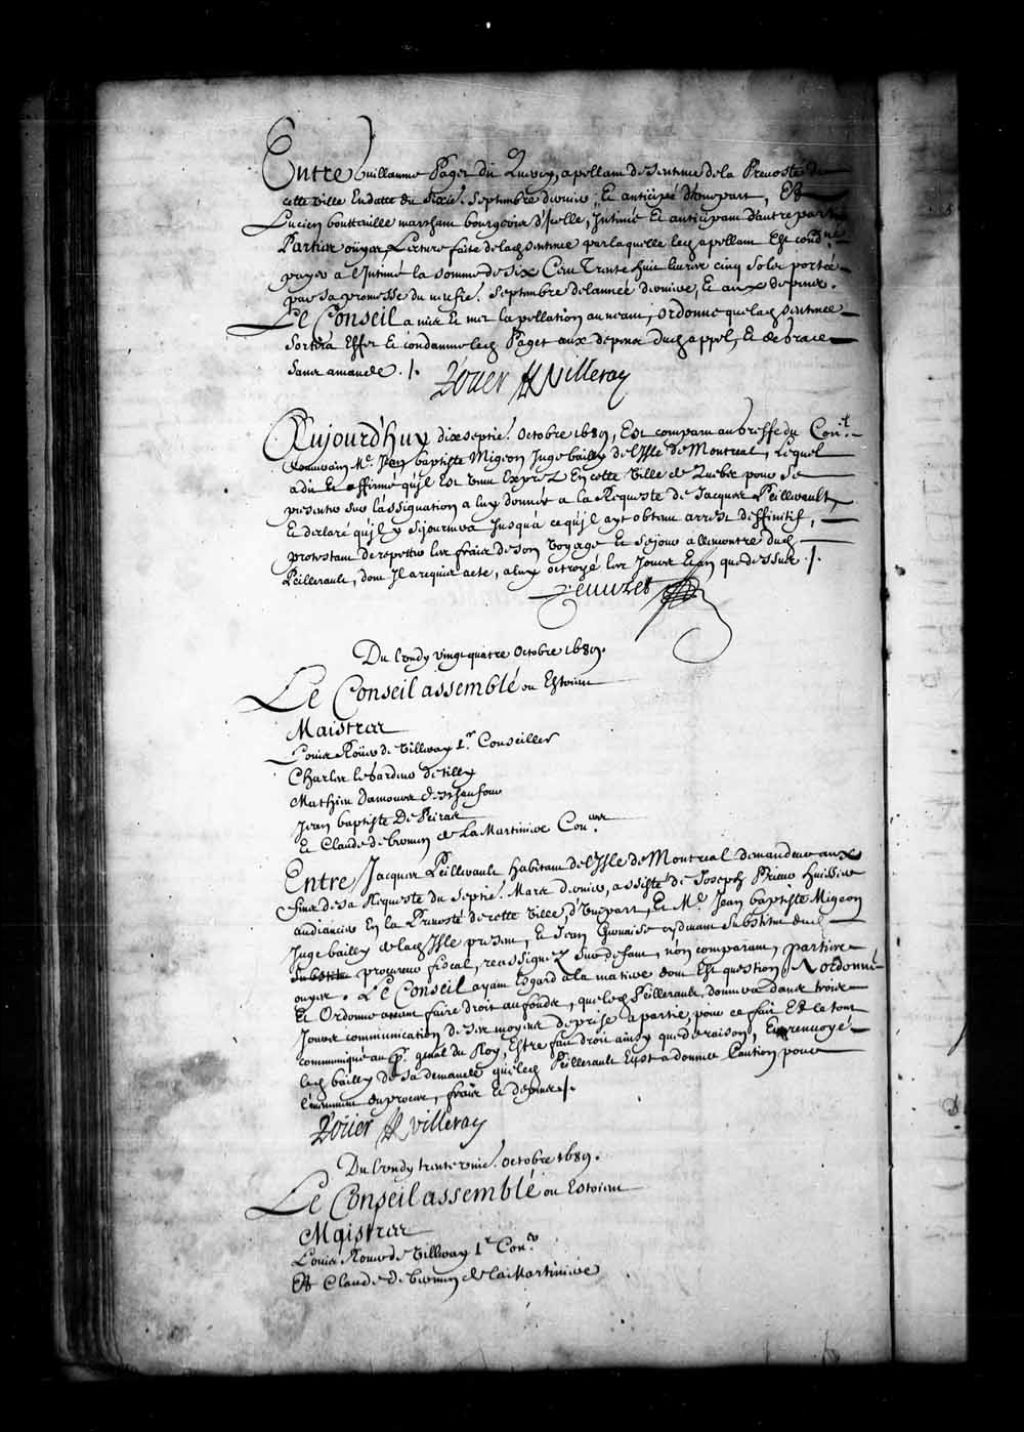 Entre Guillaume Pagez dit Quercy, apellant de sentence de la Prevosté de
cette ville En datte du sixie. septembre dernier, Et anticipé d'une part, Et
Lucien boutteuille marchant bourgeois d'Jcelle, Jntimé Et anticipant d'autre part
Parties oüyes, Lecture faite de lad sentence par laquelle led apellant Est cond.né
payer a l'Jntimé la somme de six Cent Trente huit livres cinq sols portée
par sa promesse du septembre de l'année derniere, Et aux depens.
Le Conseil a mis Et met l'apellation au neant, ordonne que lad sentence
sortira Effet Et condamne led Pagez aux depens dud appel, Et de grace
sans amande ./.
Roüer de villeray
Aujourd'huy dix septie. octobre 1689, Est comparu au greffe du Con.l
souverain Me. Jean baptiste Migeon Juge bailly de l'Jsle de Montreal, Lequel
a dit Et affirmé qu'jl Est venu Exprez En cette ville de Quebec pour se
presenter sur l'assignation a luy donnée a la Requeste de Jacques Peillerault,
Et declaré qu'jl y sejournera Jusqu'a ce qu'jl ayt obtenu arrest deffinitif,
protestant de repetter les fraix de son voyage Et sejour a l'encontre dud
Peillerault, dont Jl a requis acte, a luy octroyé les Jour Et an que dessus ./.
Peuuret
Du Lundy vingt quatre octobre 1689.
Le Conseil assemblé ou Estoient
Maistres
Louis Roüer de Villeray 1.er Conseiller
Charles le Gardeur de Tilly
Mathieu Damours Deschaufour
Jean baptiste De Peiras
Et Claude de bermen de La Martiniere Con.ers
Entre Jacques Peillerault habitant de l'Jsle de Montreal demandeur aux
fins de sa Requeste du septie. Mars dernier, assisté de Joseph Prieur huissier
audiancier En la Prevosté de cette ville, d'Une part, Et Me. Jean baptiste Migeon
Juge bailly de lad Jsle present, Et Jean Gervaise substitut du
procureur fiscal, reassigné sur defaut, non comparant, parties
ouyes. LE Conseil ayant Esgard a la matiere dont Est question, A ordonné
Et Ordonne avant faire droit au fonds, que led Peillerault donnera dans trois
Jours communication de ses moyens de prise a partie, pour ce fait Et le tout
communiqué au P.r gnâl du Roy, Estre fait droit ainsy que de raison, Et renvoyé
led bailly de sa demande que led Peillerault Eust a donner Caution pour
l'evenement du proces, fraix Et depens ./.
Roüer de villeray
Du Lundy trente vnie. octobre 1689.
Le Conseil assemblé ou Estoient
Maistres
Louis Roüer de Villeray 1.er Con.er
Et Claude de bermen de la Martiniere